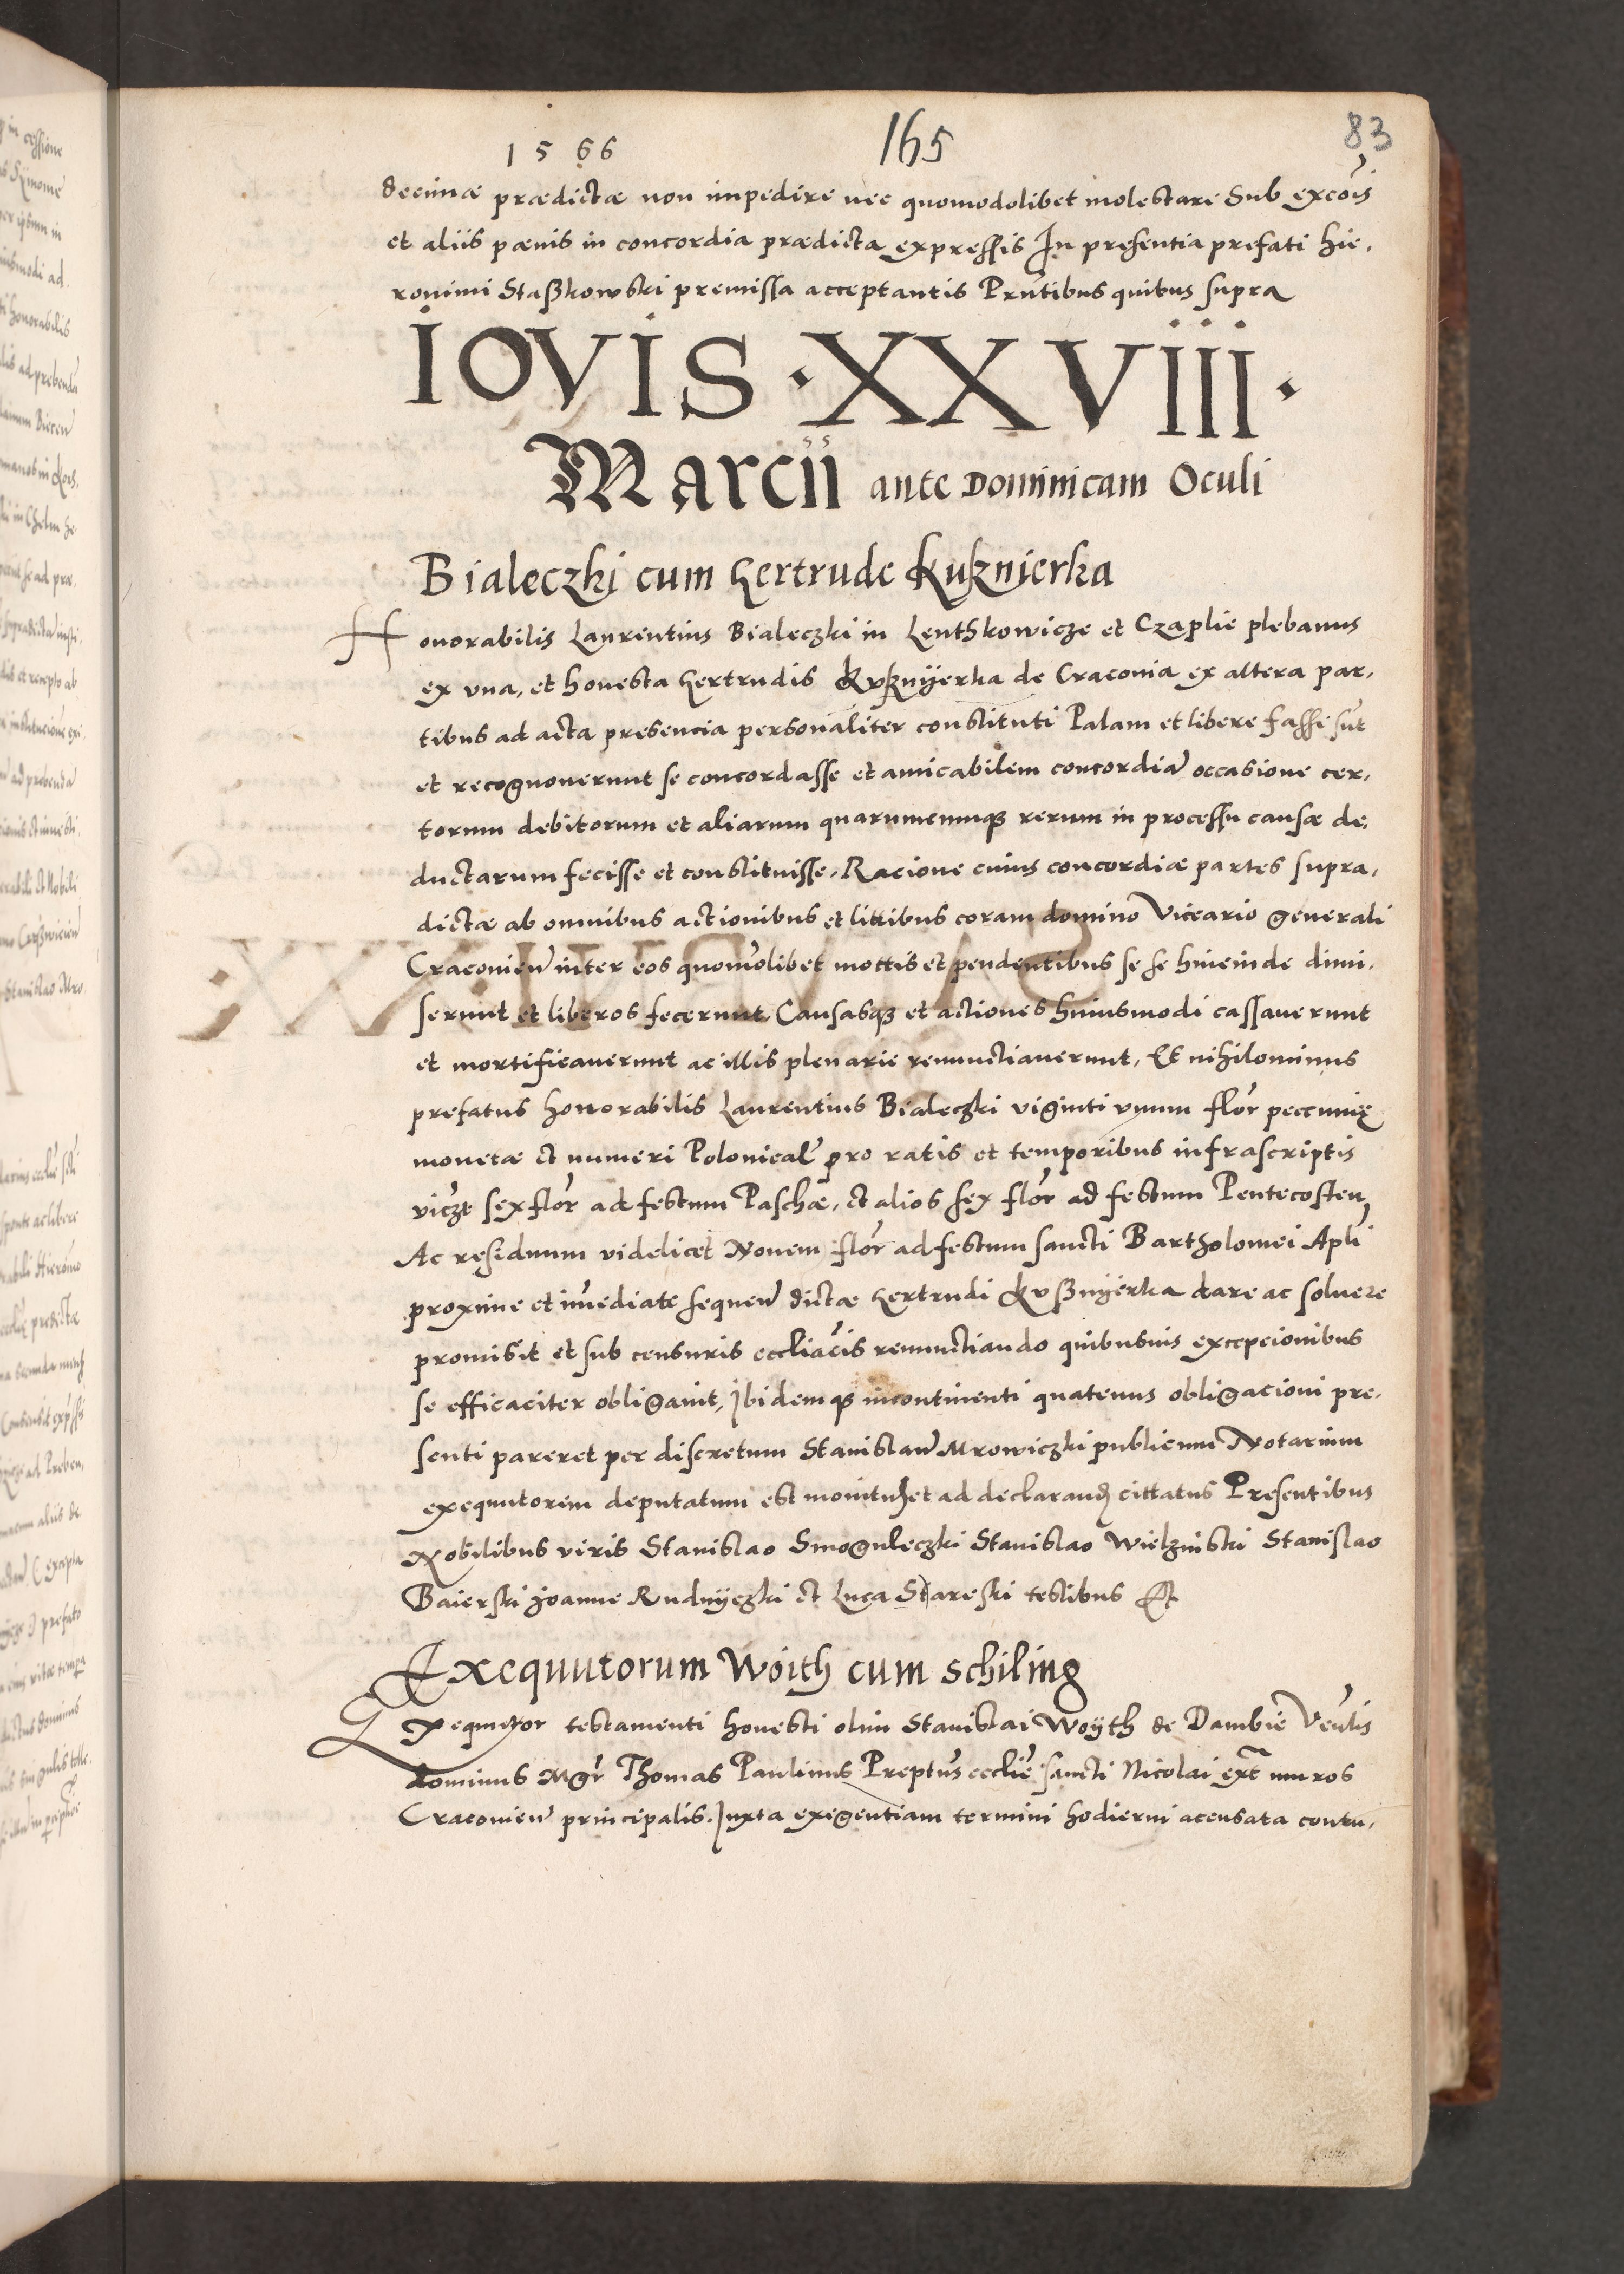 1566 165 83
decimæ prædictæ non impedire nec quomodolibet molestare Sub excōis
et aliis pænis in concordia prædicta expressis In presentia prefati Hie,
ronimi Staßkowski premissa acceptantis Prntibus quibus supra
IOVIS · XXVIII ·
Marcii ante Dominicam Oculi
Bialeczki cum Hertrude Kußnierka
Honorabilis Laurentius Bialeczki in Lenthkowicze et Czaplie plebanus
ex vna, et honesta Hertrudis Kvßnÿerka de Craconia ex altera par,
tibus ad acta presencia personaliter constituti Palam et libere fassi sūt
et recognouerunt se concordasse et amicabilem concordiā occasione cer,
torum debitorum et aliarum quarumcumqꝫ rerum in processu causæ de,
ductarum fecisse et constituisse, Racione cuius concordiæ partes supra,
dictæ ab omnibus actionibus et littibus coram domino Viceario generali
Craconieñ inter eos quomōlibet mottis et pendentibus se se hincinde dimi,
serunt et liberos fecerunt, Causasqꝫ et actiones huiusmodi cassauerunt
et mortificauerunt ac illis plenarie renunctiauerunt, Et nihilominus
prefatus honorabilis Laurentius Bialeczki viginti vnum flor peccunię
monetæ et numeri Polonical pro ratis et temporibus infrascriptis
viczt sex flor ad festum Paschæ, et alios sex flor ad festum Pentecosten,
Ac residuum videlicet Nouem flor ad festum sancti Bartholomei Apli
proxime et im̄ediate sequeñ dictæ Hertrudi Kvßnÿerka dare ac soluere
promisit et sub censuris eccliācis renunctiando quibusuis excepcionibus
se efficaciter obligauit, Ibidemqꝫ incontinenti quatenus obligacioni pre,
senti pareret per discretum Stanislaū Mrowiczki publicum Notarium
exequutorem deputatum est monitus et ad declarand cittatus Presentibus
Nobilibus viris Stanislao Smoguleczki Stanislao Wielzinski Stanislao
Baierski Joanne Rudnÿczki et Luca Stareski testibus &c
Exequutorum Woith cum Schiling
Exequutor testamenti honesti olim Stanislai Woÿth de Dambie Venlis
dominus Mgr Thomas Paulinus Preptus ecclīe sancti Nicolai extr muros
Craconieñ principalis. Juxta exigentiam termini hodierni acensata contu,